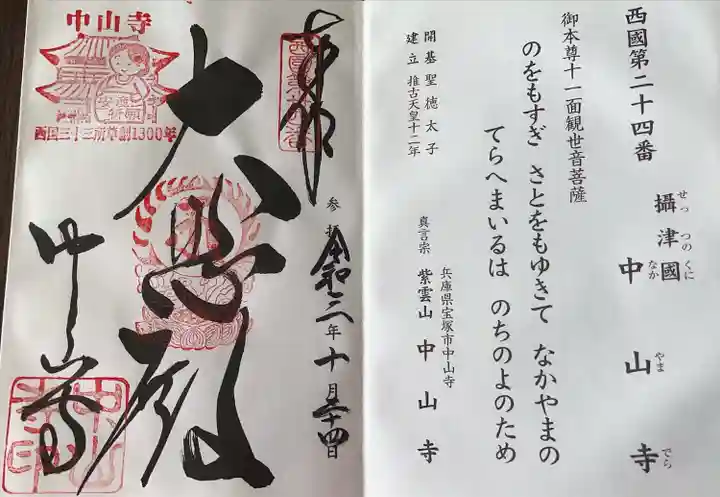 西國第二十四番
攝津國 中山寺
せっ つの くに なか やま でら
御本尊十一面観世音菩薩
のをもすぎ さとをもゆきて なかやまの
てらへまいるは のちのよのため
開基 聖徳太子
建立 推古天皇十二年
兵庫県宝塚市中山寺
真言宗 紫雲山中山寺
奉拝
参拝 令和三年十月二十四日
大悲殿
中山寺
中山寺
安産祈願
西国三十三所草創1300年